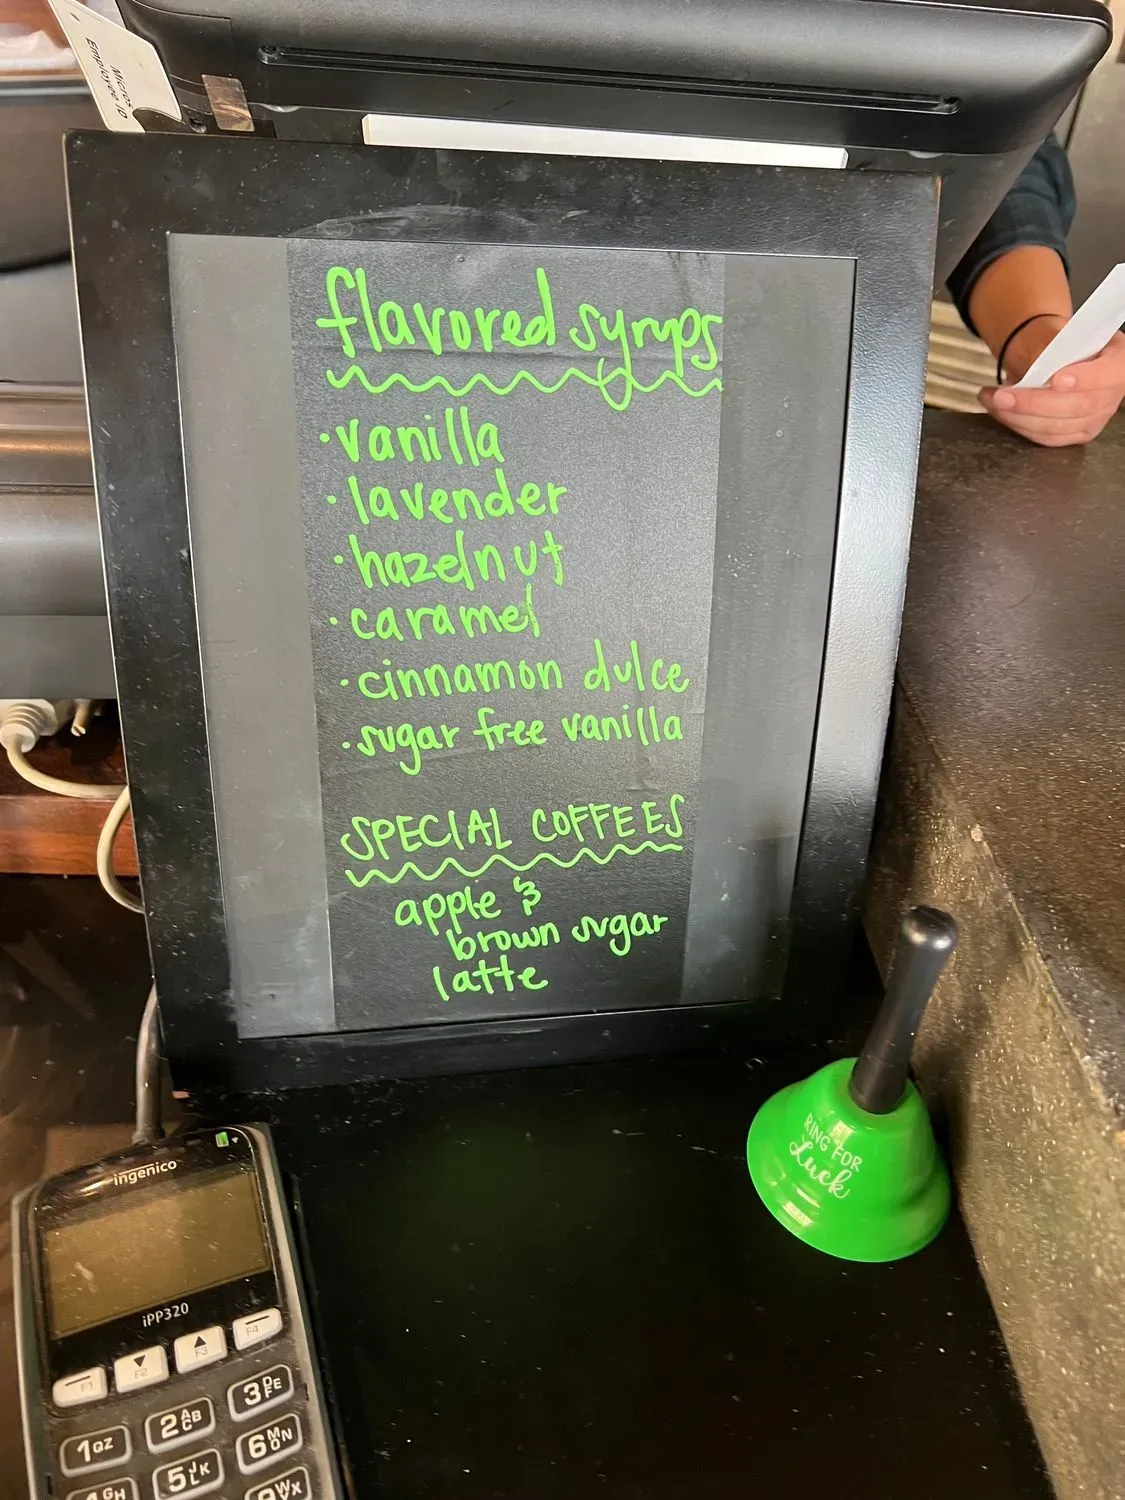 Micros
Employee ID
flavored syrups
• vanilla
• lavender
• hazelnut
• caramel
• cinnamon dulce
• sugar free vanilla
SPECIAL COFFEES
apple &
brown sugar
latte
RING FOR
Luck
ingenico
iPP320
F1
F2
F3
F4
1 QZ
2 ABC
3 DEF
5 JKL
6 MNO